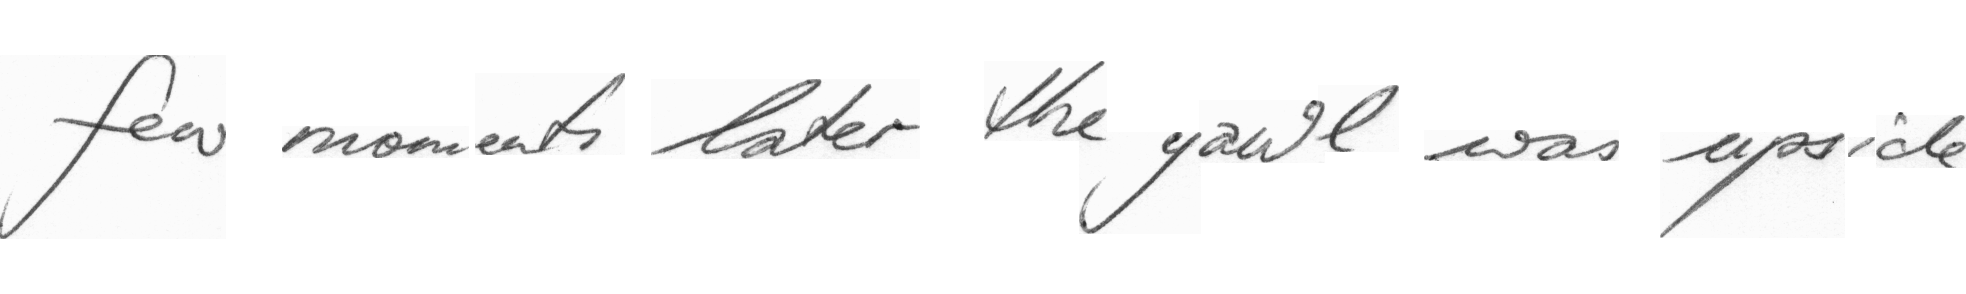 few moments later the yawl was upside